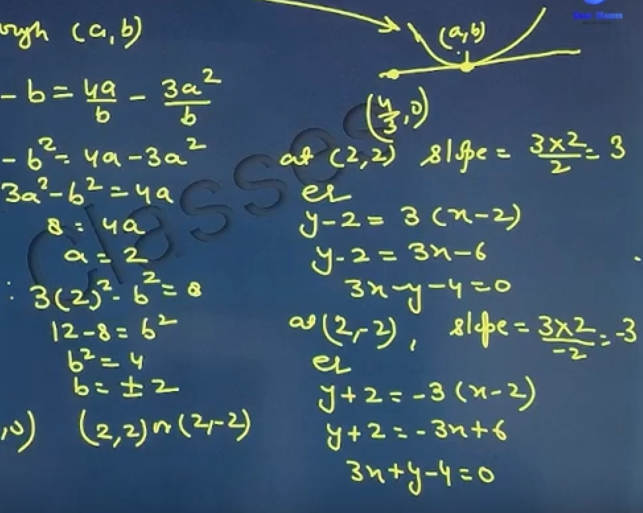 ough (a,b)
- b = 4a/b - 3a²/b
- b² = 4a - 3a²
3a² - b² = 4a
8 = 4a
a = 2
: 3(2)² - b² = 8
12 - 8 = b²
b² = 4
b = ± 2
,0) (2,2) or (2,-2)
(a,b)
(4/3, 0)
at (2,2) slope = 3×2/2 = 3
eq
y - 2 = 3 (x - 2)
y - 2 = 3x - 6
3x - y - 4 = 0
at (2,-2), slope = 3×2/-2 = -3
eq
y + 2 = -3 (x - 2)
y + 2 = -3x + 6
3x + y - 4 = 0
Classes